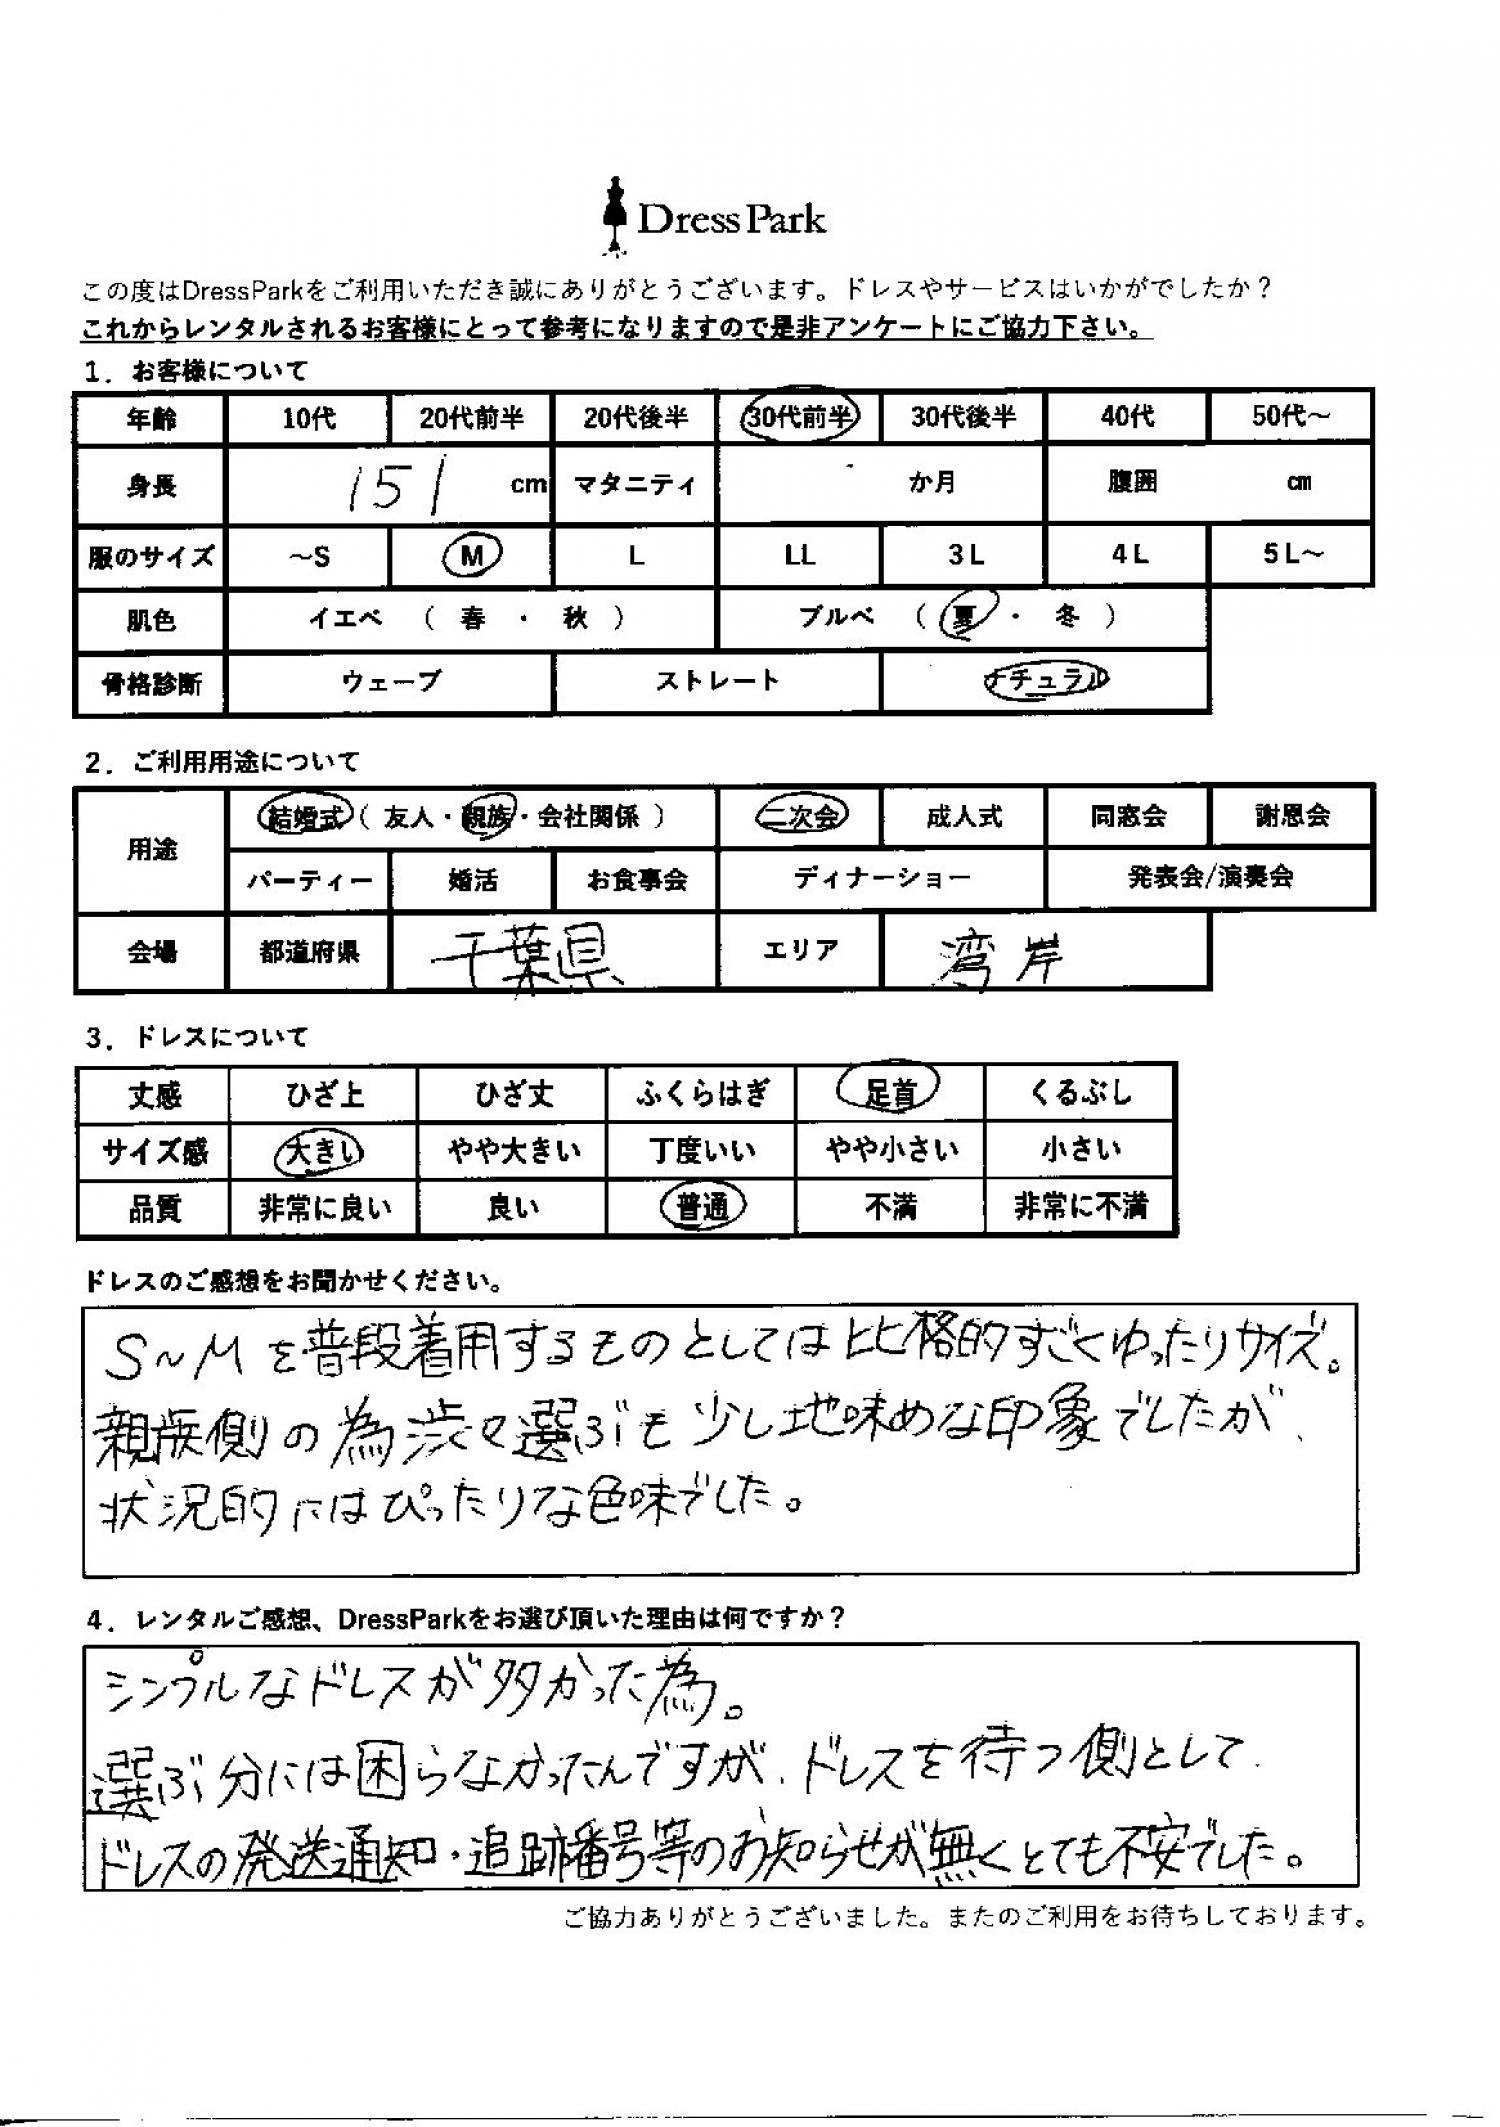 Dress Park
この度はDressParkをご利用いただき誠にありがとうございます。ドレスやサービスはいかがでしたか？
これからレンタルされるお客様にとって参考になりますので是非アンケートにご協力下さい。
1．お客様について
年齢 10代 20代前半 20代後半 30代前半 30代後半 40代 50代～
身長 151 cm マタニティ か月 腹囲 cm
服のサイズ ～S M L LL 3L 4L 5L～
肌色 イエベ （ 春 ・ 秋 ） ブルベ （ 夏 ・ 冬 ）
骨格診断 ウェーブ ストレート ナチュラル
2．ご利用用途について
用途 結婚式（ 友人・親族・会社関係 ） 二次会 成人式 同窓会 謝恩会
パーティー 婚活 お食事会 ディナーショー 発表会/演奏会
会場 都道府県 千葉県 エリア 湾岸
3．ドレスについて
丈感 ひざ上 ひざ丈 ふくらはぎ 足首 くるぶし
サイズ感 大きい やや大きい 丁度いい やや小さい 小さい
品質 非常に良い 良い 普通 不満 非常に不満
ドレスのご感想をお聞かせください。
S～Mを普段着用するものとしては比格的すごくゆったりサイズ。
親族側の為渋々選ぶも少し地味めな印象でしたが、
状況的にはぴったりな色味でした。
4．レンタルご感想、DressParkをお選び頂いた理由は何ですか？
シンプルなドレスが多かった為。
選ぶ分には困らなかったんですが、ドレスを待つ側として
ドレスの発送通知・追跡番号等のお知らせが無くとても不安でした。
ご協力ありがとうございました。またのご利用をお待ちしております。